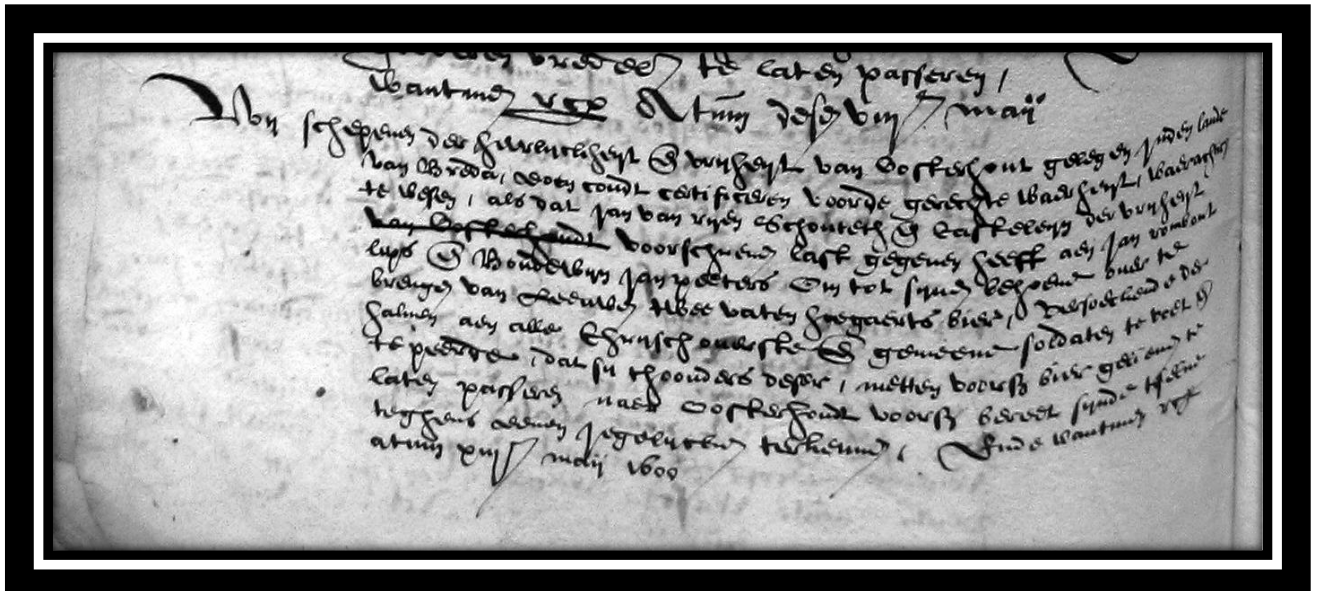 vredelick te laten passeren /
wantmen etc Actum desen viij maij
Wij schepenen der heerlicheyt en vrijheyt van Oosterhout gelegen inden lande
van Breda, doen condt certificeren voorde gerechte waerheyt, waerachtich
te wesen, als dat Jan van rijen Schouteth en Casteleyn der vrijheyt
van Oosterhoudt voorschreven last gegeven heeft aen Jan rombout
luijs en Boudewijn Jan peeters Om tot sijnen behoeve over te
brengen van Leeuwen twee vaten hoegaerts bier, versoeckende der
halven aen alle en gemeene soldaten te voet en
te peerde, dat sij thoonders deser, metten voors bier geriem te
laten passeren naer Oosterhoudt voors bereet sijnde tselve
teghens eenen jegelijcken terkennen, Ende wantmen etc
actum xiij maij 1600